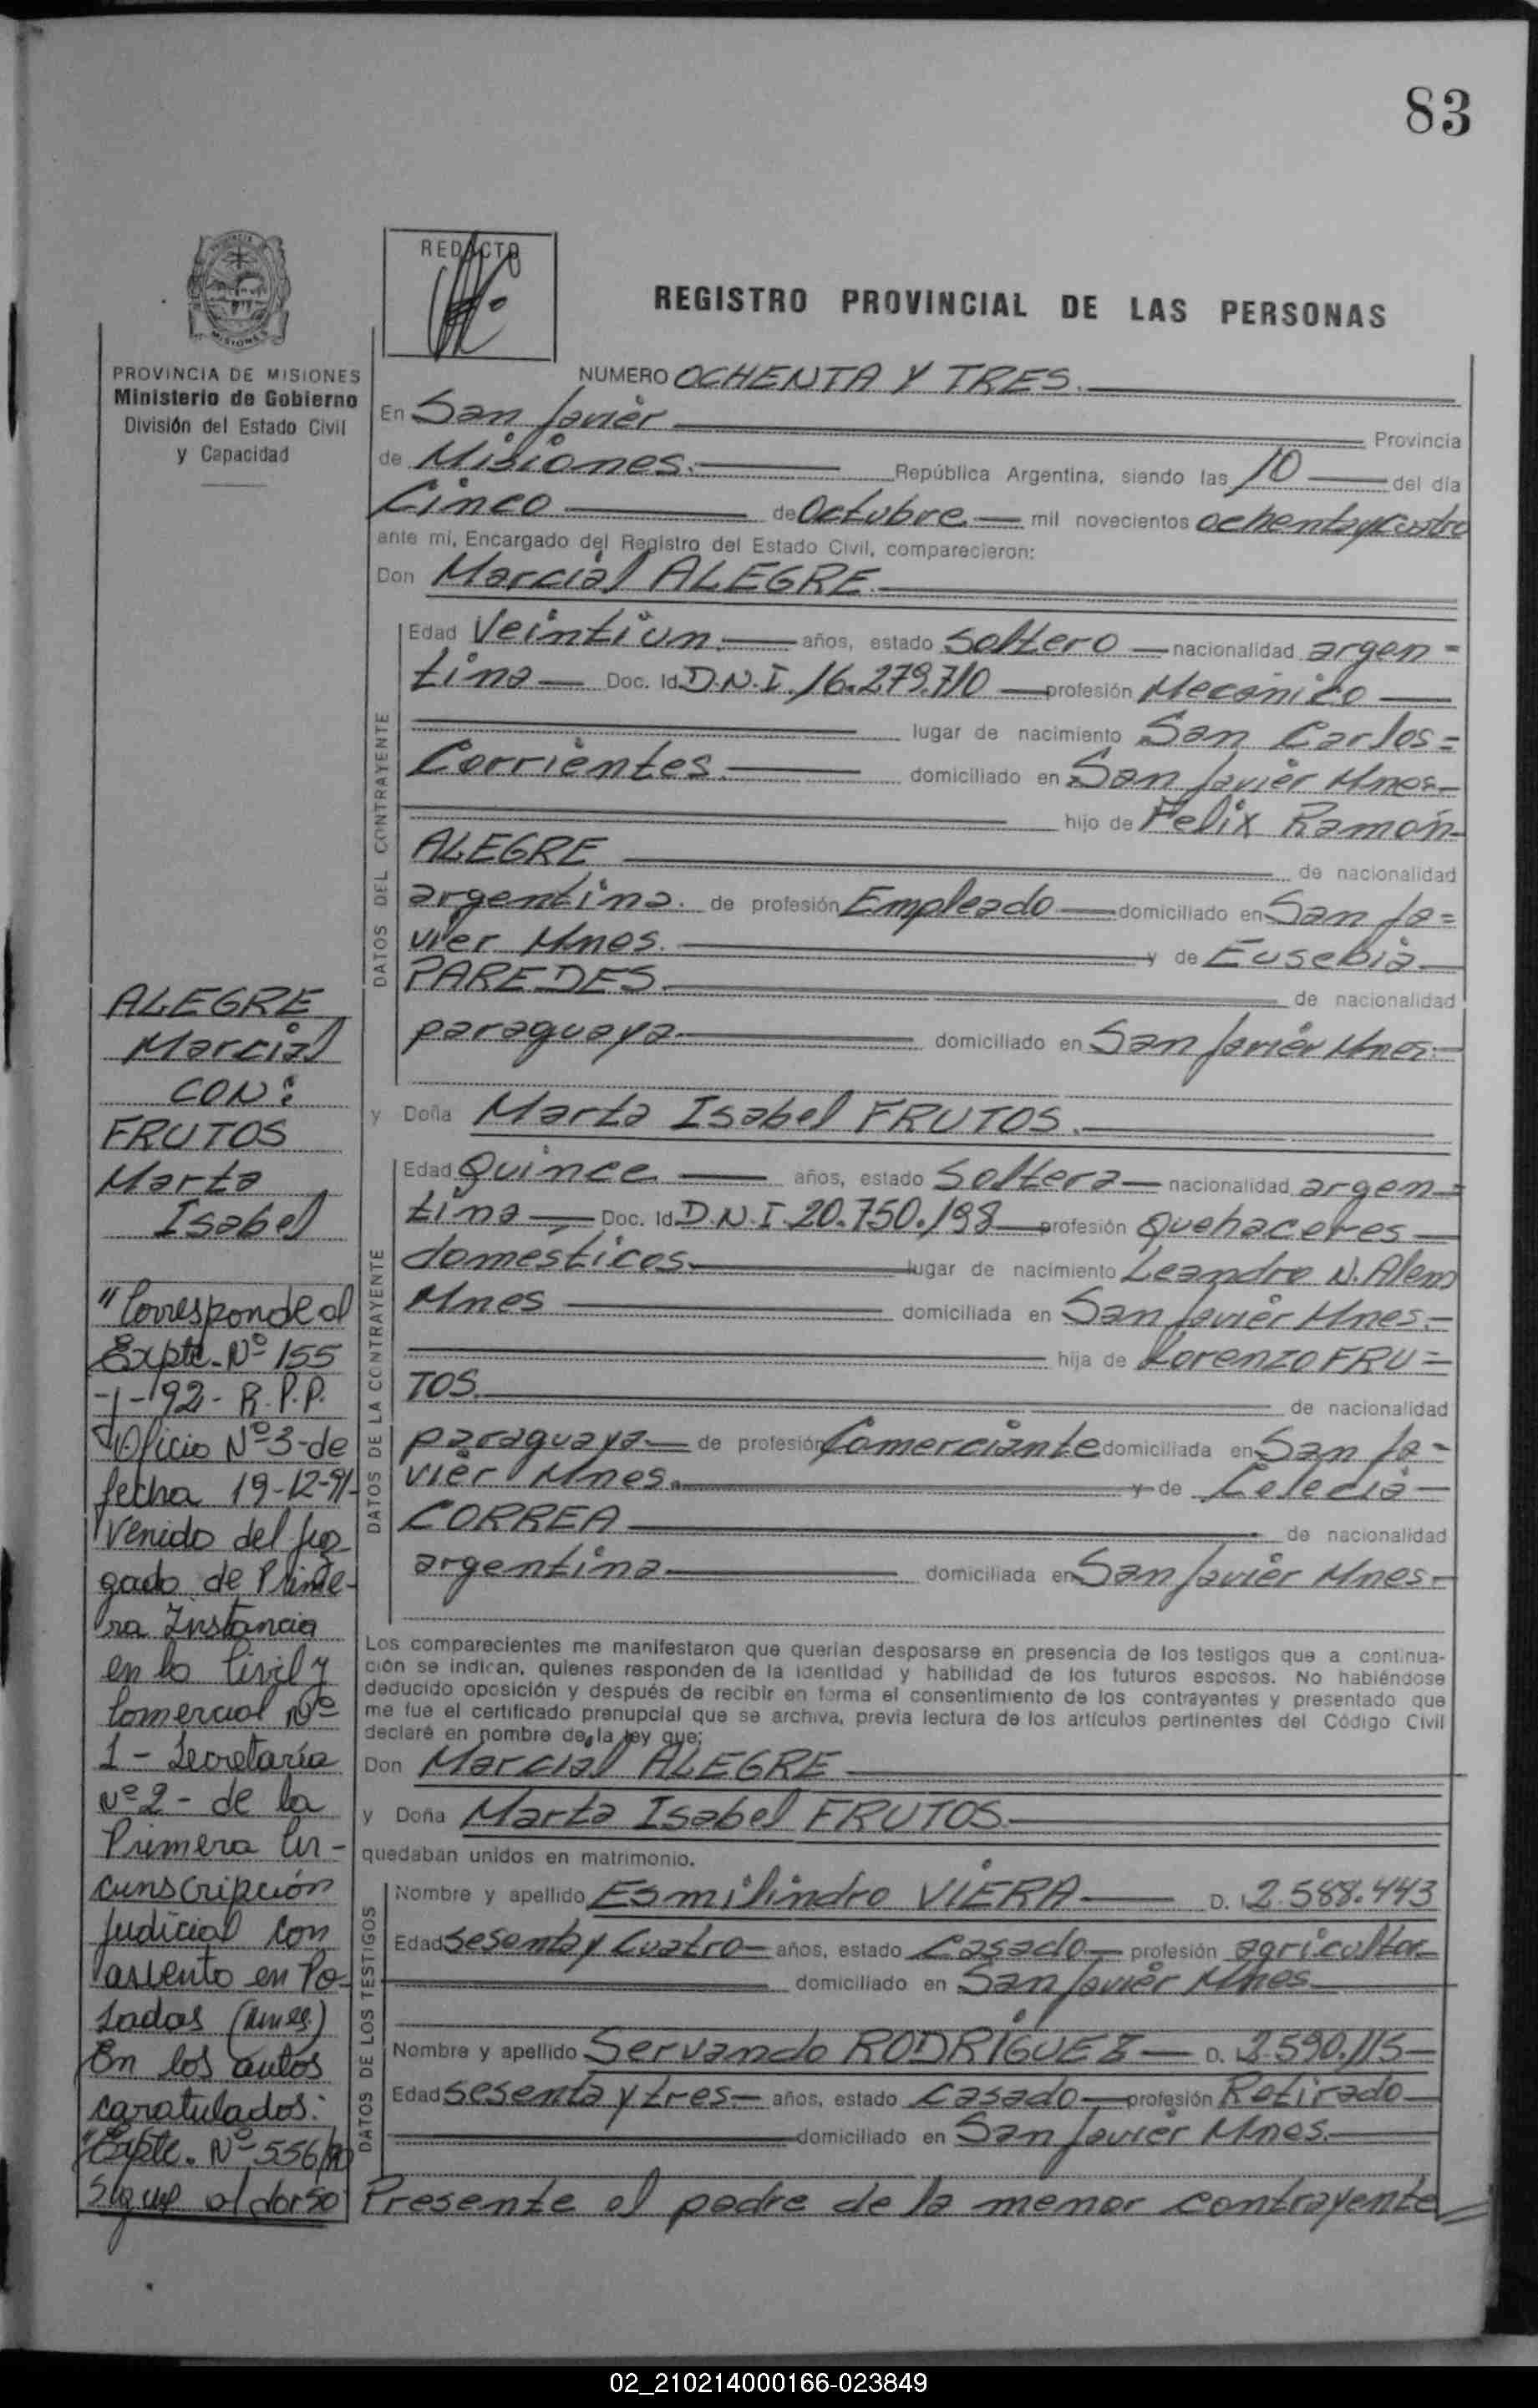 83
REDACTO
REGISTRO PROVINCIAL DE LAS PERSONAS
PROVINCIA DE MISIONES
Ministerio de Gobierno
División del Estado Civil
y Capacidad
NUMERO OCHENTA Y TRES.
En San Javier Provincia
de Misiones. República Argentina, siendo las 10 del día
Cinco de Octubre mil novecientos ochenta y cuatro
ante mi, Encargado del Registro del Estado Civil, comparecieron:
Don Marcial ALEGRE.
DATOS DEL CONTRAYENTE
Edad Veintiun años, estado Soltero nacionalidad argen=
tina Doc. Id. D.N.I. 16.279.710 profesión Mecánico
lugar de nacimiento San Carlos=
Corrientes. domiciliado en San Javier Mnes.
hijo de Felix Ramón
ALEGRE de nacionalidad
argentina. de profesión Empleado domiciliado en San Ja=
vier Mnes. y de Eusebia
PAREDES. de nacionalidad
paraguaya domiciliado en San Javier Mnes.
y Doña Marta Isabel FRUTOS.
DATOS DE LA CONTRAYENTE
Edad Quince años, estado Soltera nacionalidad argen=
tina Doc. Id. D.N.I. 20.750.198 profesión Quehaceres
domésticos. lugar de nacimiento Leandro N. Alem
Mnes domiciliada en San Javier Mnes.
hija de Lorenzo FRU=
TOS. de nacionalidad
paraguaya de profesión Comerciante domiciliada en San Ja=
vier Mnes. y de Celecia
CORREA de nacionalidad
argentina domiciliada en San Javier Mnes.
Los comparecientes me manifestaron que querían desposarse en presencia de los testigos que a continua-
ción se indican, quienes responden de la identidad y habilidad de los futuros esposos. No habiéndose
deducido oposición y después de recibir en forma el consentimiento de los contrayentes y presentado que
me fue el certificado prenupcial que se archiva, previa lectura de los artículos pertinentes del Código Civil
declaré en nombre de la ley que:
Don Marcial ALEGRE
y Doña Marta Isabel FRUTOS
quedaban unidos en matrimonio.
DATOS DE LOS TESTIGOS
Nombre y apellido Esmilindro VIERA D. I 2.588.443
Edad Sesenta y Cuatro años, estado Casado profesión agricultor
domiciliado en San Javier Mnes
Nombre y apellido Servando RODRÍGUEZ D. I 2.590.115
Edad Sesenta y tres años, estado Casado profesión Retirado
domiciliado en San Javier Mnes.
Presente el padre de la menor contrayente
ALEGRE
Marcial
CON:
FRUTOS
Marta
Isabel
"Corresponde al
Expte. Nº 155
-1-92- R.P.P.
Oficio Nº 3- de
fecha 19-12-91-
Venido del Juz
gado de Prime-
ra Instancia
en lo Civil y
Comercial Nº
1 - Secretaría
Nº 2 - de la
Primera Cir-
cunscripción
Judicial con
asiento en Po-
sadas (Mnes.)
En los autos
caratulados:
"Expte. Nº 556/90
Sigue al dorso
02_210214000166-023849